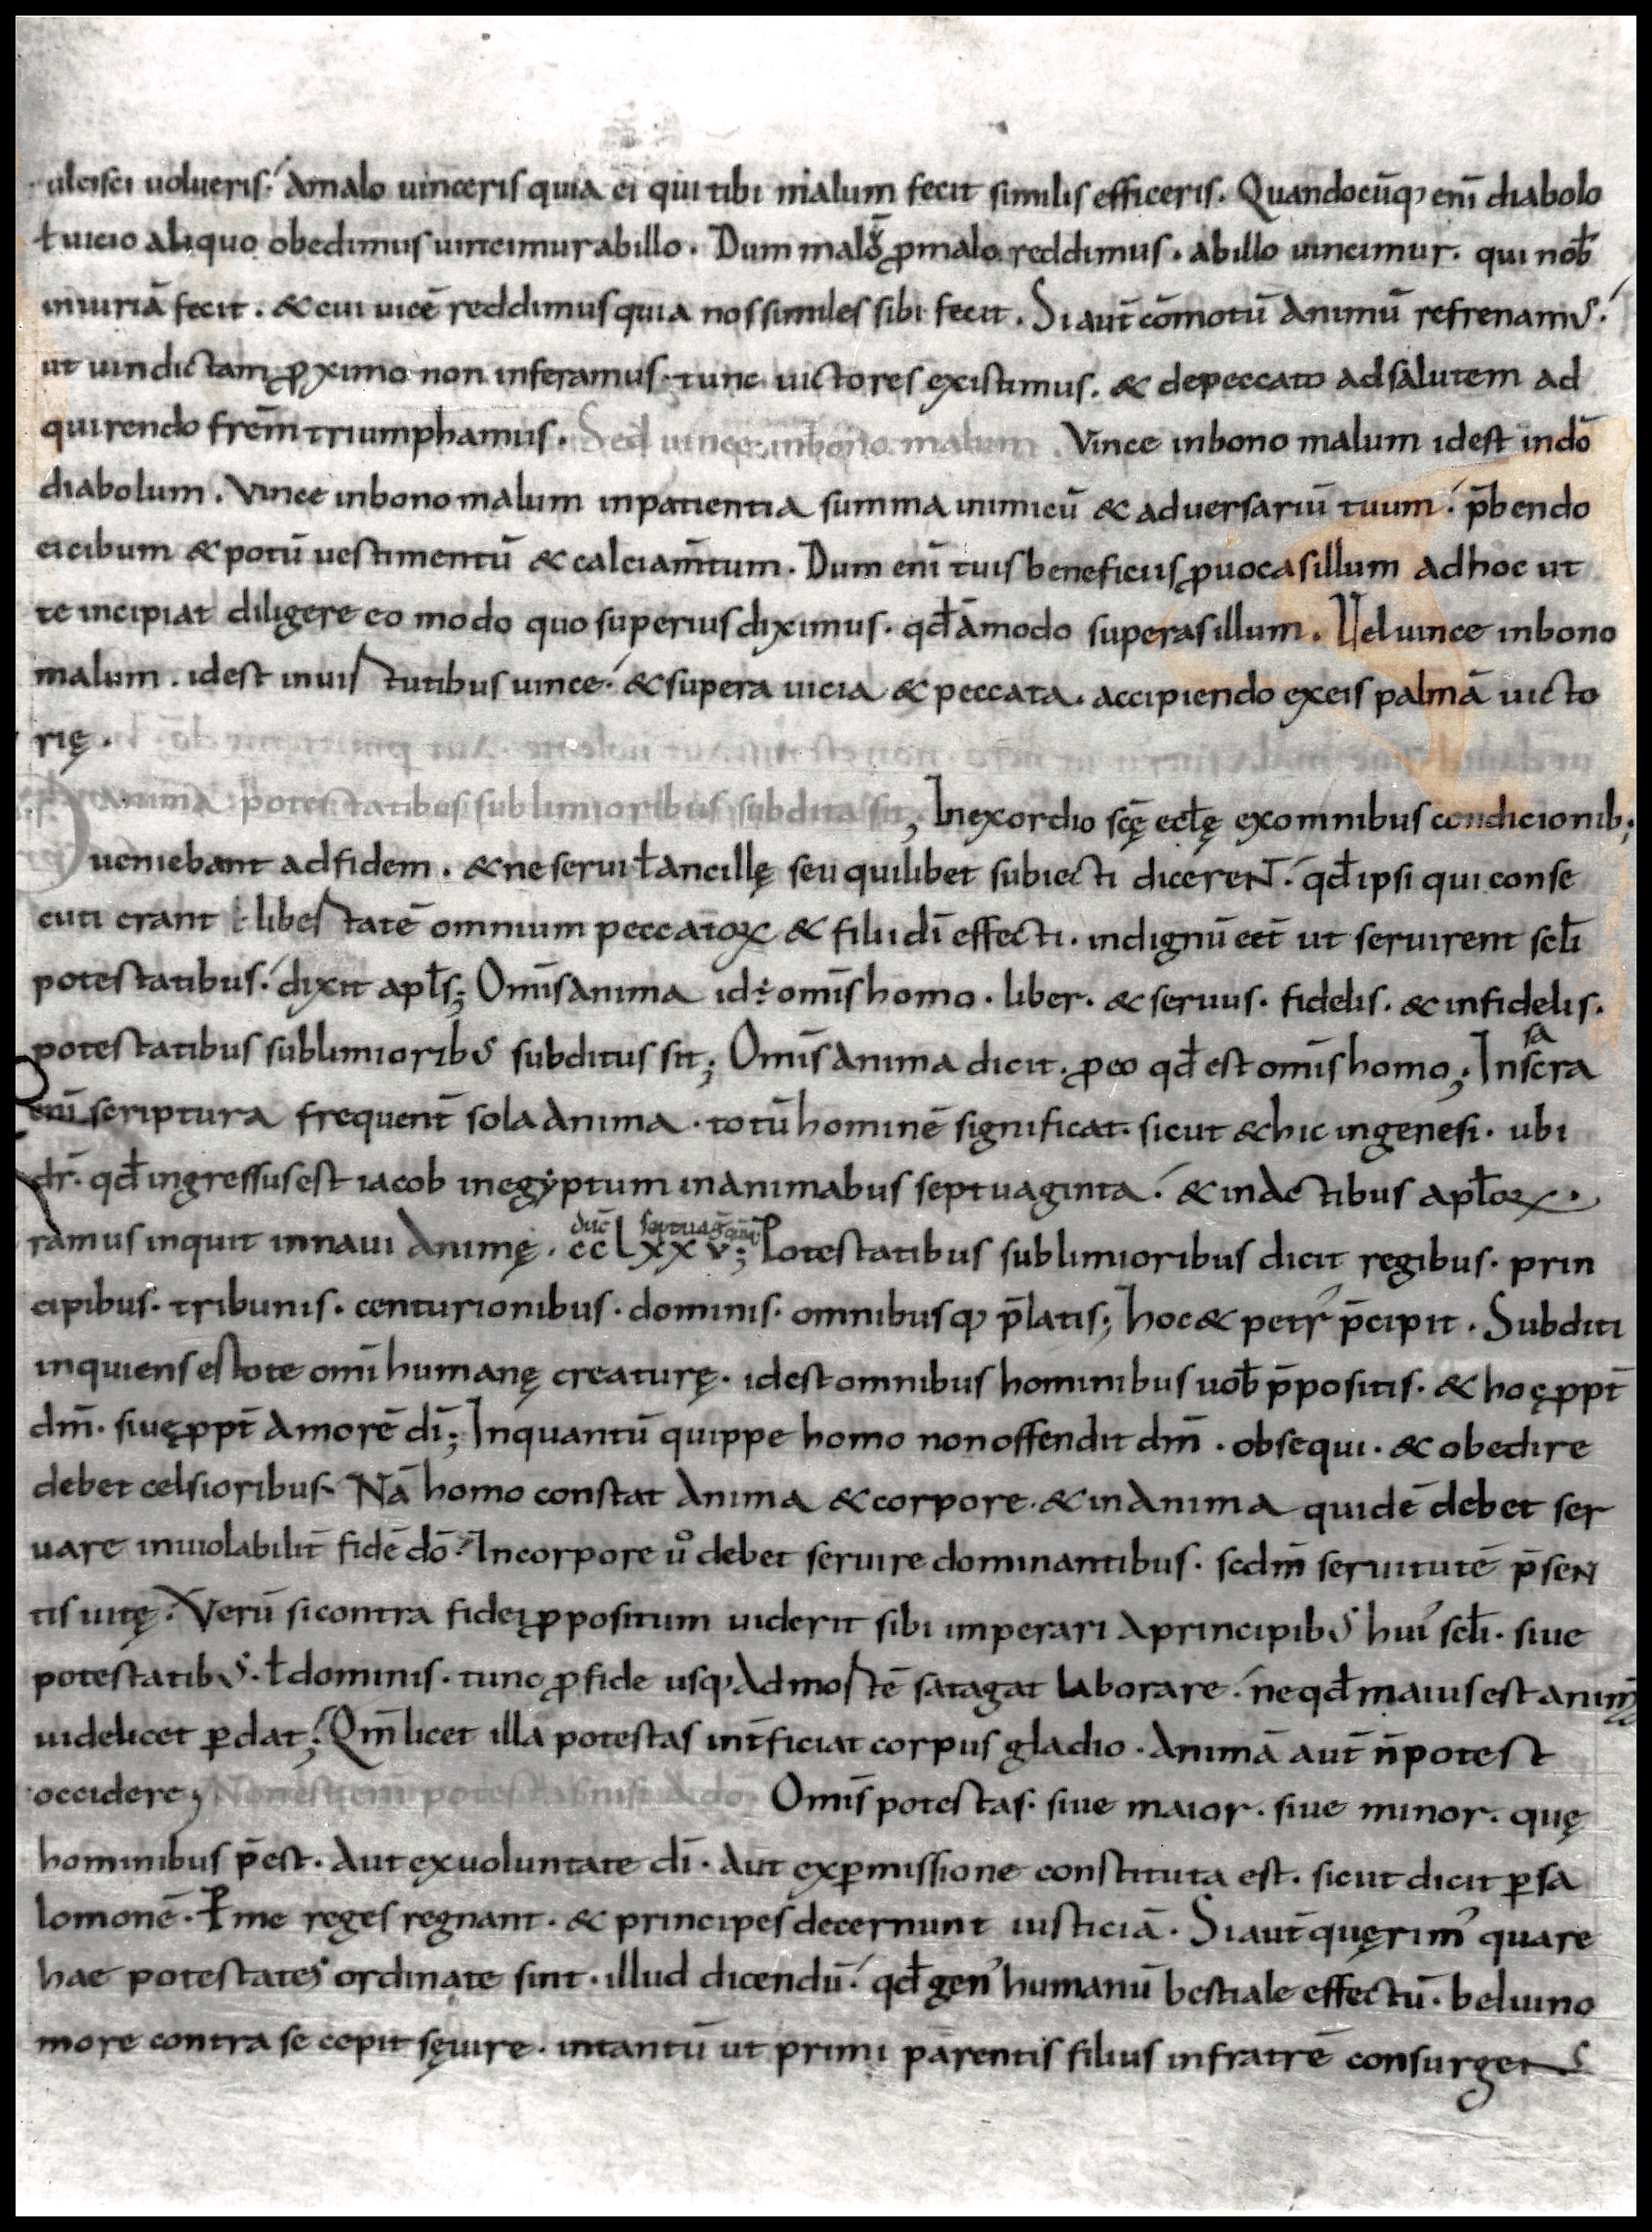 ulcisci uolueris. A malo uinceris quia ei qui tibi malum fecit similis efficeris. Quandocūq; enī diabolo
ł uicio aliquo obedimus uincimur ab illo. Dum malū ꝓ malo reddimus. ab illo uincimur. qui nob̄
iniuriā fecit. & cui uicē reddimus quia nos similes sibi fecit. Si aut̄ cōmotū animū refrenamꝰ.
ut uindictam ꝓximo non inferamus. tunc uictores existimus. & de peccato ad salutem ad
quirendo frēm triumphamus. Sed uince in bono malum. Vince in bono malum id est in dō
diabolum. Vince in bono malum in patientia summa inimicū & aduersariū tuum. p̄bendo
ei cibum & potū uestimentū & calciam̄tum. Dum enī tuis beneficiis ꝓuocas illum ad hoc ut
te incipiat diligere eo modo quo superius diximus. qđāmodo superas illum. Vel uince in bono
malum. id est in uirtutibus uince. & supera uicia & peccata. accipiendo ex eis palmā uicto
rię.
anima potestatibus sublimioribus subdita sit; In exordio scę̄ ecłę ex omnibus condicionib;
ueniebant ad fidem. & ne serui ł ancillę seu quilibet subiecti dicereNT. qđ ipsi qui conse
cuti erant libertatē omnium peccatoꝝ & filii dī effecti. indignū eēt ut seruirent scłi
potestatibus. dixit apłs; Om̄is anima id ÷ om̄is homo. liber. & seruus. fidelis. & infidelis.
potestatibus sublimioribꝰ subditus sit; Om̄is anima dicit. ꝓ eo qđ est om̄is homo; In sacra
enī scriptura frequent̄ sola anima. totū hominē significat. sicut & hic in genesi. ubi
dr̄. qđ ingressus est iacob in egẏptum in animabus septuaginta. & in actibus apłoꝝ.
ramus inquit in naui animę. cclxxv; Potestatibus sublimioribus dicit regibus. prin
cipibus. tribunis. centurionibus. dominis. omnibusq; p̄latis; hoc & petrꝰ p̄cipit. Subditi
inquiens estote om̄i humanę creaturę. id est omnibus hominibus uob̄ p̄positis. & hoc ꝓpt̄
dm̄. siue ꝓpt̄ amorē dī; In quantū quippe homo non offendit dm̄. obsequi. & obedire
debet celsioribus. Nā homo constat anima & corpore. & in anima quidē debet ser
uare inuiolabilit̄ fidē dō. In corpore uͦ debet seruire dominantibus. scdm̄ seruitutē p̄seN
tis uitę. Verū si contra fidei ꝓpositum uiderit sibi imperari a principibꝰ huiꝰ scłi. siue
potestatibꝰ. ł dominis. tunc ꝓ fide usq; ad mortē satagat laborare. ne qđ maius est animā
uidelicet ꝑdat; Qm̄ licet illa potestas int̄ficiat corpus gladio. Animā aut̄ n̄ potest
occidere; Non est enī potestas nisi a dō. Om̄is potestas. siue maior. siue minor. quę
hominibus p̄est. Aut ex uoluntate dī. aut ex ꝑmissione constituta est. sicut dicit ꝑ sa
lomonē. Ꝑ me reges regnant. & principes decernunt iusticiā. Si aut̄ quęrimꝰ quare
hae potestates ordinate sint. illud dicendū. qđ genꝰ humanū bestiale effectū. beluino
more contra se cepit sęuire. in tantū ut primi parentis filius in fratrē consurgens